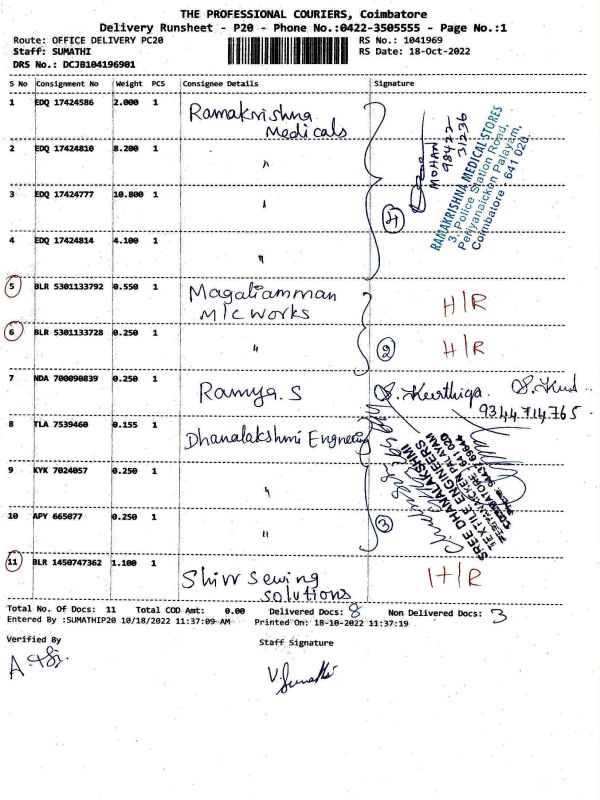 THE PROFESSIONAL COURIERS, Coimbatore
Delivery Runsheet - P20 - Phone No.:0422-3505555 - Page No.:1
Route: OFFICE DELIVERY PC20 RS No.: 1041969
Staff: SUMATHI RS Date: 18-Oct-2022
DRS No.: DCJB104196901
S No Consignment No Weight PCS Consignee Details Signature
1 EDQ 17424586 2.000 1 Ramakrishna Medicals
2 EDQ 17424810 8.200 1 "
3 EDQ 17424777 10.800 1 "
4 EDQ 17424814 4.100 1 "
4
MOHAN
98422
31236
RAMAKRISHNA MEDICAL STORES
3, Police Station Road,
Periyanaicken Palayam,
Coimbatore - 641 020.
5 BLR 5301133792 0.550 1 Magaliamman M/C Works H/R
6 BLR 5301133728 0.250 1 " 2 H/R
7 NDA 700090839 0.250 1 Ramya. S S. Keerthiga
9344714765.
8 TLA 7539460 0.155 1 Dhanalakshmi Engneering
9 KYK 7024057 0.250 1 "
10 APY 665077 0.250 1 "
3
SREE DHANALAKSHMI
TEXTILE ENGINEERS
PERIYANAICKEN PALAYAM
COIMBATORE - 641 020
11 BLR 1450747362 1.100 1 Shirr sewing solutions H/R
Total No. Of Docs: 11 Total COD Amt: 0.00 Delivered Docs: 8 Non Delivered Docs: 3
Entered By :SUMATHIP20 10/18/2022 11:37:09 AM Printed On: 18-10-2022 11:37:19
Verified By Staff Signature
V. Sumathi